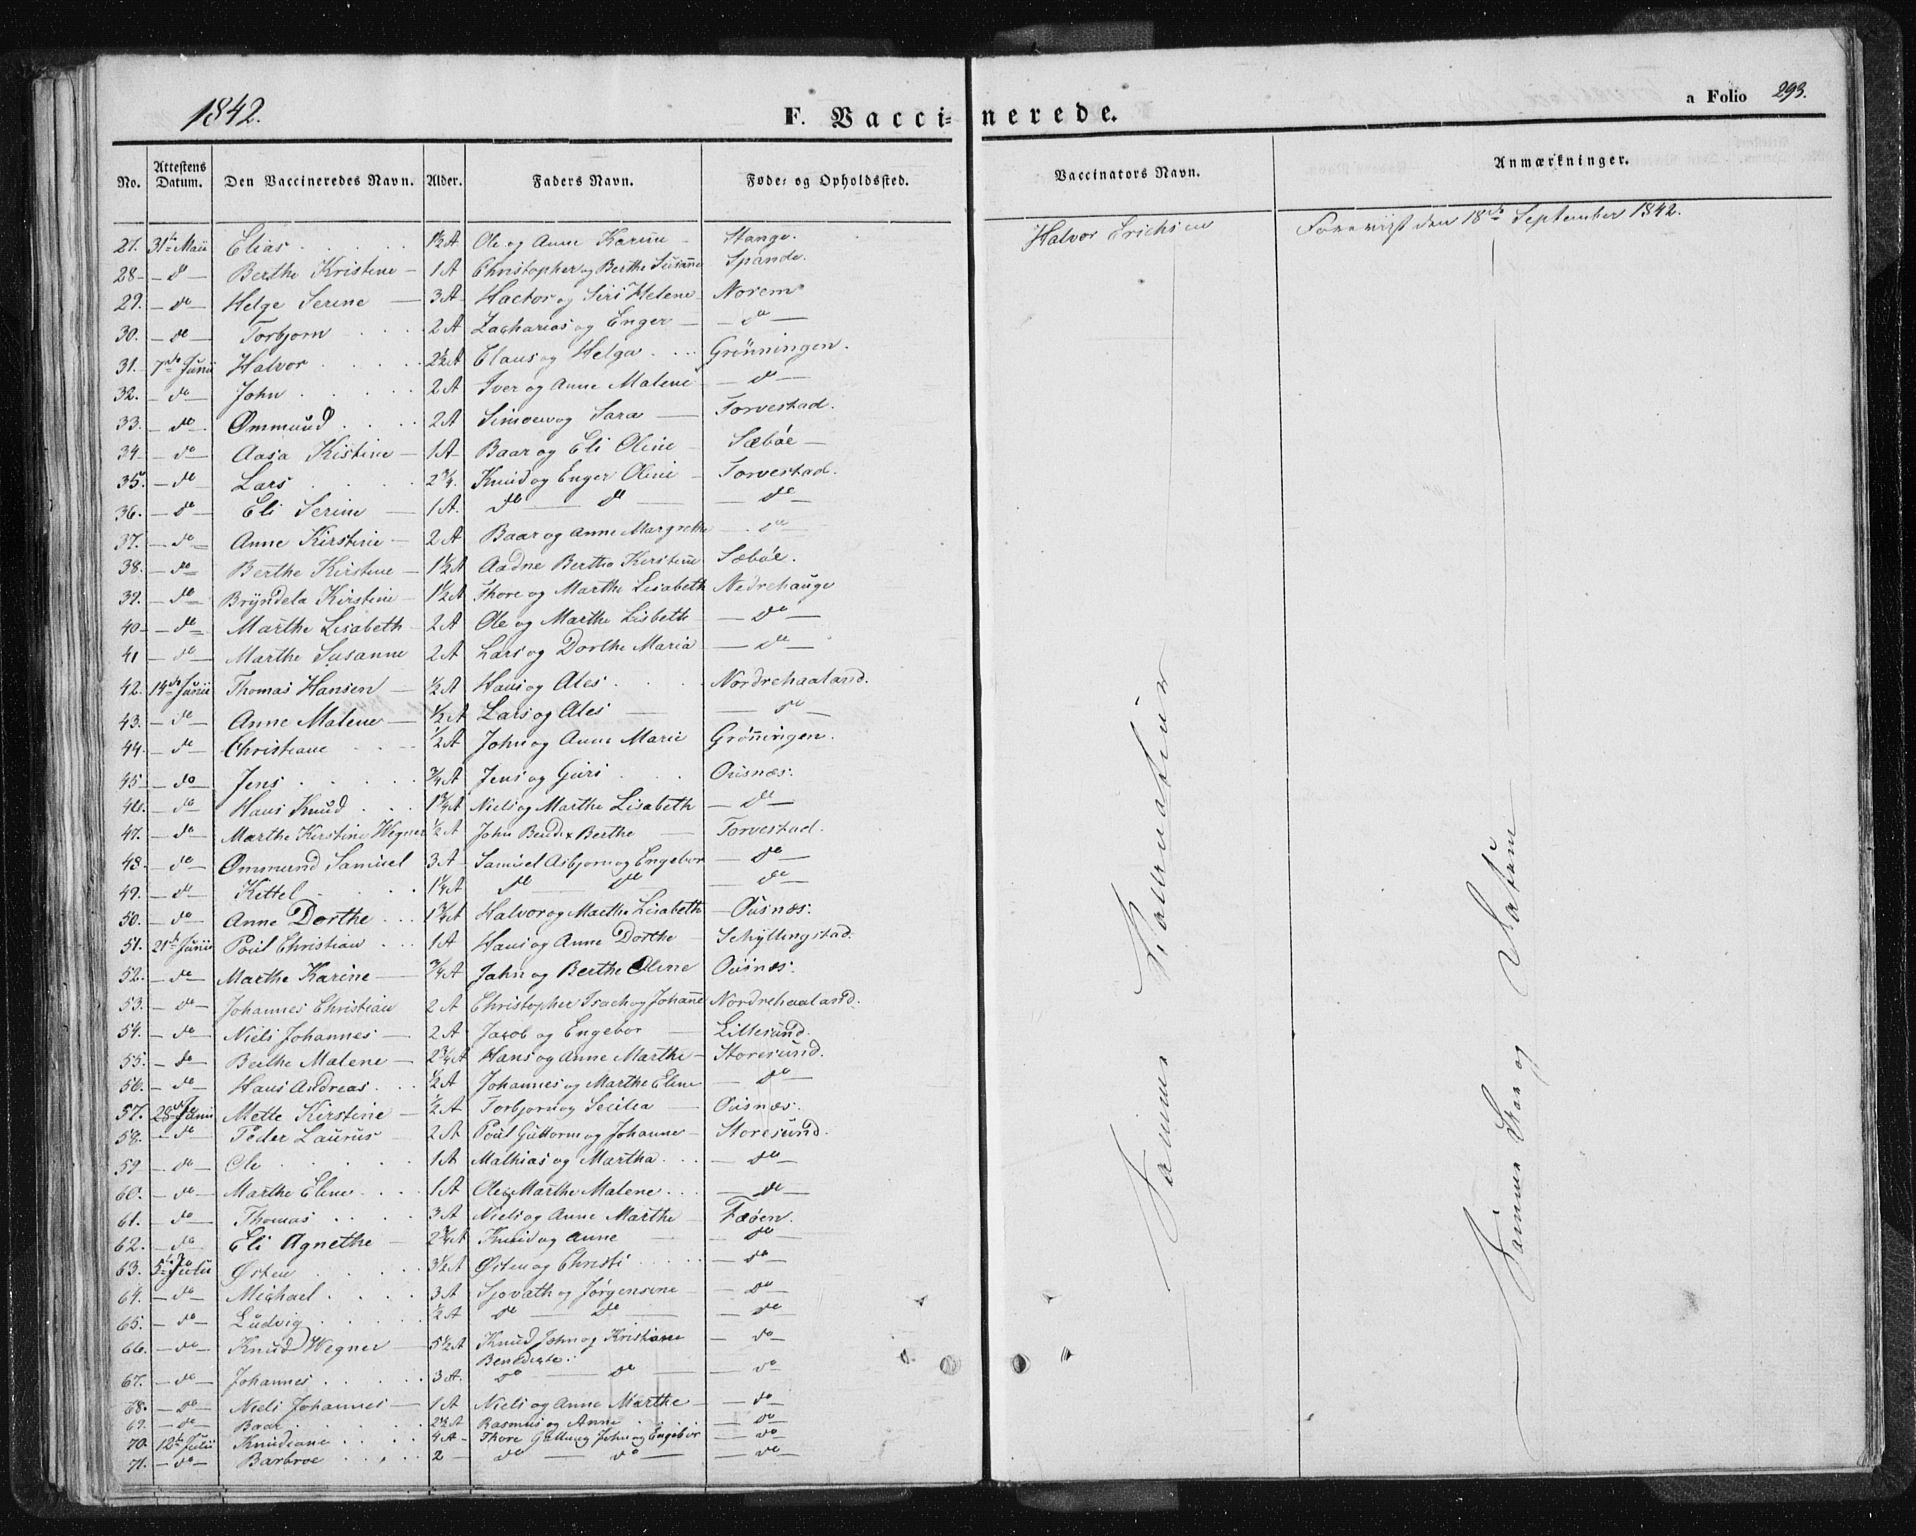 1842.
F. Vaccinerede.
a Folio 293.
No. Attestens Datum. Den Vaccineredes Navn. Alder. Faders Navn. Føde- og Opholdssted. Vaccinators Navn. Anmærkninger.
27. 31te Maii Elias 1½ A Ole og Anne Karine Stange. Halvor Erichsen Foreviist den 18de September 1842.
28 do Berthe Kristine 1 A Christopher og Berthe Susanne Spande.
29. do Helge Serine 3 A Hactor og Siri Helene Norem
30. do Torbjorn 2 A Zacharias og Enger do
31. 7de Junii Halvor 2½ A Claus og Helga Grönningen.
32. do John 2 A Iver og Anne Malene do
33. do Ommund 2 A Simoen og Sara Torvestad.
34 do Aasa Kistine 1 A Baar og Eli Oline Sæböe
35. do Lars 2¾. Knud og Enger Oline Torvestad.
36. do Eli Serine 1 A. do do do
37. do Anne Kirstine 2 A Baar og Anne Margrethe do
38. do Berthe Kirstine 1½ A Aadne Bertha Kirstine Sæböe.
39. do Bryndela Kirstine 1½ A Thore og Marthe Lisabeth Nedrehauge
40 do Marthe Lisabeth 2 A Ole og Marthe Lisbeth do
41 do Marthe Susanne 2 A Lars og Dorthe Maria do
42. 14de Junii Thomas Hansen ½ A Hans og Ales Nordrehaaland.
43. do Anne Malene ½ A Lars og Ales do
44. do Christiane ½ A John og Anne Marie Grönningen.
45 do Jens ¾ A Jens og Guri Ousnæs.
46. do Hans Knud 1¾ A Niels og Marthe Lisabeth do
47. do Marthe Kirstine Wegner ½ A John Bendix Berthe Torvestad.
48. do Ommund Samuel 3 A Samuel Asbjorn og Engebor do
49. do Kettel 1¼ A do do do
50. do Anne Dorthe 1¾ A Halvor og Marthe Lisabeth Ousnæs.
51. 21de Junii Poul Christian 1 A Hans og Anne Dorthe Schyllingstad.
52. do Marthe Karine ¾ A John og Berthe Oline Ousnæs.
53. do Johannes Christian 2 A Christopher Isach og Johanne Nordrehaaland.
54. do Niels Johannes 2 A Jacob og Engebor Lillesund.
55. do Berthe Malene 2¾ A Hans og Anne Marthe Storesund.
56. do Hans Andreas ½ A Johannes og Marthe Eline do
57. 28de Junii Mette Kirstine ½ A Torbjorn og Secilia Ousnæs.
58. do Peder Laurus 2 A Poul Guttorm og Johanne Storesund.
59 do Ole 1 A Mathias og Martha do
60. do Marthe Eline 1 A Ole og Marthe Malene do
61. do Thomas 3 A Niels og Anne Marthe Fæöen.
62. do Eli Agnethe 2¾ A Knud og Anne do
63. 5te Julii Østen 3½ A Østen og Christi do
64. do Michael 3 A Sjovath og Jørgensine do
65. do Ludvig ½ A do do do
66. do Knud Wegner 5½ A Knud John og Kristiane Bendicte. do
67. do Johannes 3 A. do do do
68. do Niels Johannes 1 A Niels og Anne Marthe do
69. do Baar 2½ A Rasmus og Anne do
70. 12te Julii Knudiane 4 A Thore Gullung John og Engebor do
71. do Barbroe 2 do do do
Samme
Samme Staa og